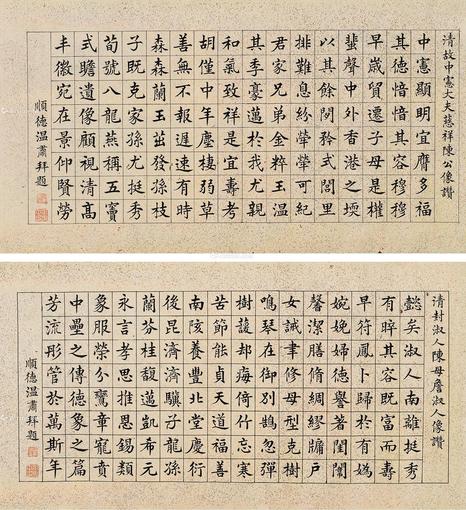 清故中憲大夫慈祥陳公像讚
中憲顯明宜膺多福
其德愔愔其容穆穆
早歲貿遷子母是權
蜚聲中外香港之堧
以其餘閒矜式閭里
排難息紛犖犖可紀
君家兄弟金粹玉溫
其季豪邁於我尤親
和氣致祥是宜壽考
胡僅中年塵棲弱草
善無不報遲速有時
森森蘭玉茁發孫枝
子既克家孫尤挺秀
荀號八龍燕稱五竇
式瞻遺像顧視清高
丰徽宛在景仰賢勞
順德溫肅拜題
清封淑人陳母詹淑人像讚
懿矣淑人南離挺秀
有晬其容既富而壽
早符鳳卜歸於有媯
婉娩婦德譽著閨闈
馨潔膳脩綢繆牖戶
女誡聿修母型克樹
鳴琴在御別鵠忽彈
樹蘐邶痗倚竹忘寒
苦節能貞天道福善
南陔養豐北堂慶衍
後昆濟濟驥子龍孫
蘭芬桂馥邁凱希元
永言孝思推恩錫類
象服榮分鸞章寵賁
中壘之傳德象之篇
芳流彤管於萬斯年
順德溫肅拜題